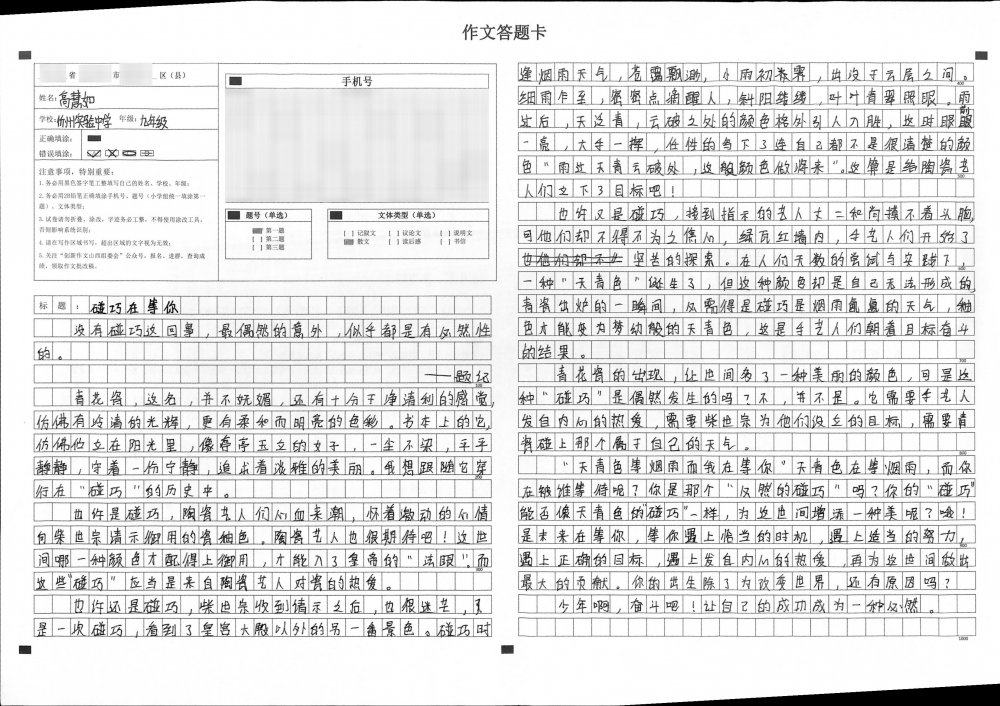 作文答题卡
省 市 区（县）
姓名：高慧如
学校：忻州实验中学 年级：九年级
正确填涂：
错误填涂：
注意事项，特别重要：
1.务必用黑色签字笔工整填写自己的姓名、学校、年级；
2.务必用2B铅笔正确填涂手机号、题号（小学组统一填涂第一
题）、文体类型；
3.试卷请勿折叠、涂改，字迹务必工整，不得使用涂改工具，
否则影响系统识别；
4.请在写作区域书写，超出区域的文字视为无效；
5.关注“创新作文山西组委会”公众号，报名、进群、查询成
绩、领取作文批改稿。
手机号
题号（单选）
第一题
[ ] 第二题
[ ] 第三题
文体类型（单选）
[ ] 记叙文 [ ] 议论文 [ ] 说明文
散文 [ ] 读后感 [ ] 书信
标 题：碰巧在等你
没有碰巧这回事，最偶然的意外，似乎都是有必然性
的。
——题纪
100
青花瓷，这名，并不妩媚，还有十分干净清利的感觉，
仿佛有冷清的光辉，更有柔和而明亮的色彩。书本上的它，
仿佛伫立在阳光里，像亭亭玉立的女子，一尘不染，平平
静静，守着一份宁静，追求着淡雅的美丽。我想跟随它穿
200
行在“碰巧”的历史中。
也许是碰巧，陶瓷艺人们心血来潮，怀着激动的心情
向柴世宗请示御用的瓷釉色。陶瓷艺人也很期待吧！这世
间哪一种颜色才配得上御用，才能入了皇帝的“法眼”。而
300
这些“碰巧”应当是来自陶瓷艺人对瓷的热爱。
也许还是碰巧，柴世宗收到请示之后，也很迷茫，又
是一次碰巧，看到了皇宫大殿以外的另一番景色。碰巧时
逢烟雨天气，苍霭飘渺，小雨初来雾，出没于云层之间。
400
细雨乍至，密密点滴醒人，斜阳缕缕，叶叶青翠照眼。雨
过后，天边青，云破之处的颜色将外引人入胜，这时眼前
一亮，大手一挥，任性的当下了连自己都不是很清楚的颜
色“雨过天青云破外，这般颜色做将来”。这算是给陶瓷艺
500
人们立下了目标吧！
也许又是碰巧，接到指示的艺人丈二和尚摸不着头脑，
可他们却不得不为之倦心，绿瓦红墙内，手艺人们开始了
坚苦的探索。在人们无数的尝试与实践下，
600
一种“天青色”诞生了，但这种颜色却是自己无法形成的，
青瓷出炉的一瞬间，必需得是碰巧是烟雨氤氲的天气，釉
色才能变为梦幻般的天青色，这是手艺人们朝着目标奋斗
的结果。
700
青花瓷的出现，让世间多了一种美丽的颜色，可是这
种“碰巧”是偶然发生的吗？不，并不是。它需要手艺人
发自内心的热爱，需要柴世宗为他们设立的目标，需要青
瓷碰上那个属于自己的天气。
800
“天青色等烟雨而我在等你”天青色在等烟雨，而你
在被谁等待呢？你是那个“必然的碰巧”吗？你的“碰巧”
能否像天青色的碰巧”一样，为这世间增添一种美呢？嗨！
是未来在等你，等你遇上恰当的时机，遇上适当的努力，
900
遇上正确的目标，遇上发自内心的热爱，再为这世间做出
最大的贡献。你的出生除了为改变世界，还有原因吗？
少年啊，奋斗吧！让自己的成功成为一种必然。
1000